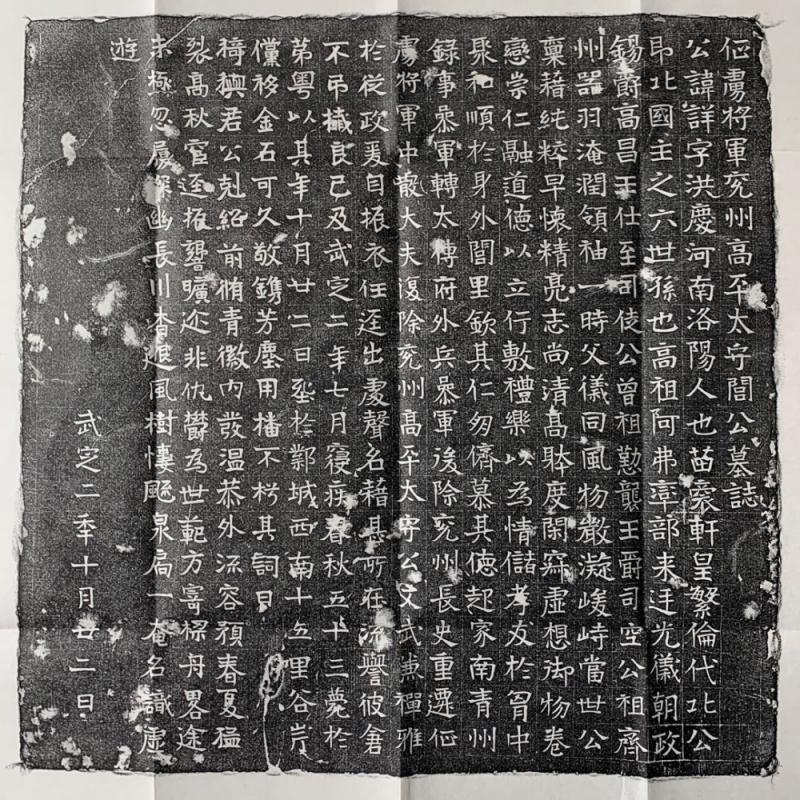 征虜將軍兗州高平太守閭公墓誌
公諱詳字洪慶河南洛陽人也苗裔軒皇繁倫代北公
即北國主之六世孫也高祖阿弗率部来迋光儀朝政
錫爵高昌王仕至司徒公曾祖懃襲王爵司空公祖齊
州器羽淹潤領袖一時父儀同風物凝峻峙當世公
稟藉純粹早懷精亮志尚清高躰度閑寐虛想御物卷
戀崇仁融道德以立行敷禮樂以為情儲孝友於胷中
聚和順於身外閭里欽其仁朋儕慕其德起家南青州
錄事叅軍轉太傅府外兵叅軍後除兗州長史重遷征
虜將軍中散大夫復除兗州高平太守公文武兼禪雅
於從政爰自振衣任迋出處聲名藉甚所在流譽彼倉
不弔殲良已及武定二年七月寢疾春秋五十三薨於
第粵以其年十月廿二日葬於鄴城西南十五里谷岸
儻移金石可久敬鐫芳塵用播不朽其詞曰
猗歟君公剋紹前脩青徽內發温恭外流容頪春夏猛
裂高秋宦迋振響曠迩非仇欝為世範方寄樑舟畧途
未極忽屬深幽長川杳遠風樹悽颼泉扃一奄名識虛
遊
武定二年十月廿二日